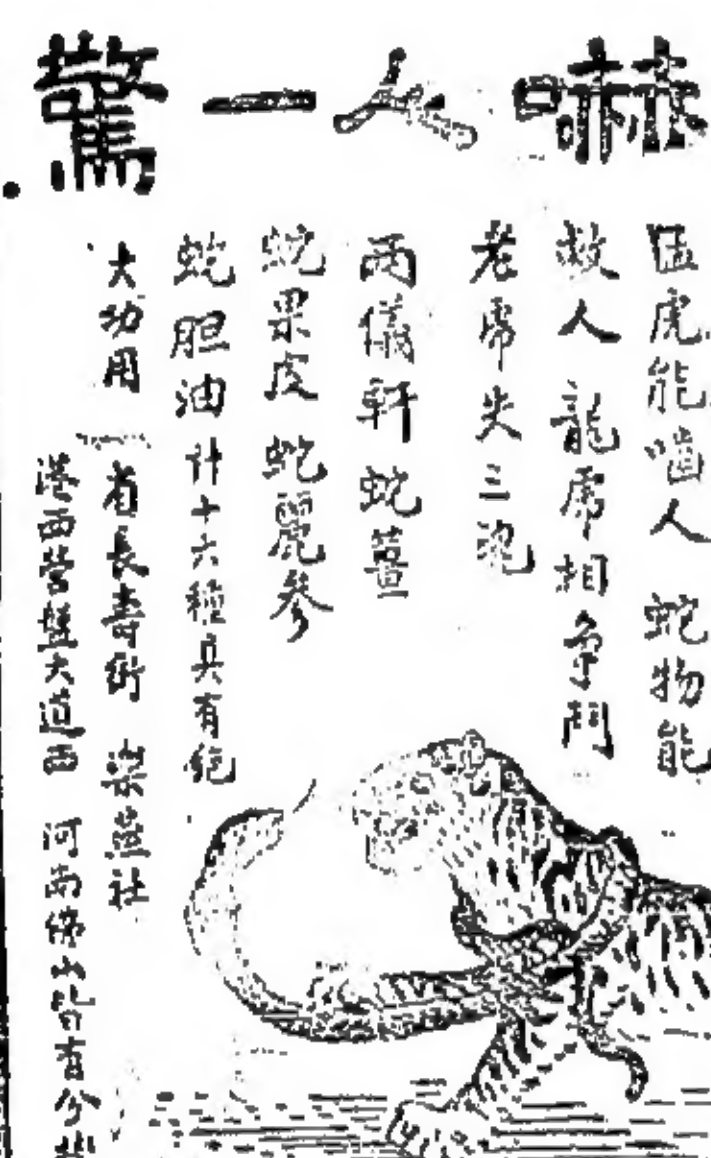 嚇人一驚
猛虎能噬人 蛇物能
救人 龍虎相争鬥
老虎失三魂
兩儀軒 蛇薑
蛇果皮 蛇麗參
蛇胆油 計十六種具有絶
大功用
省長壽街 樂滋社
西營盤大道西 河南佛山皆有分